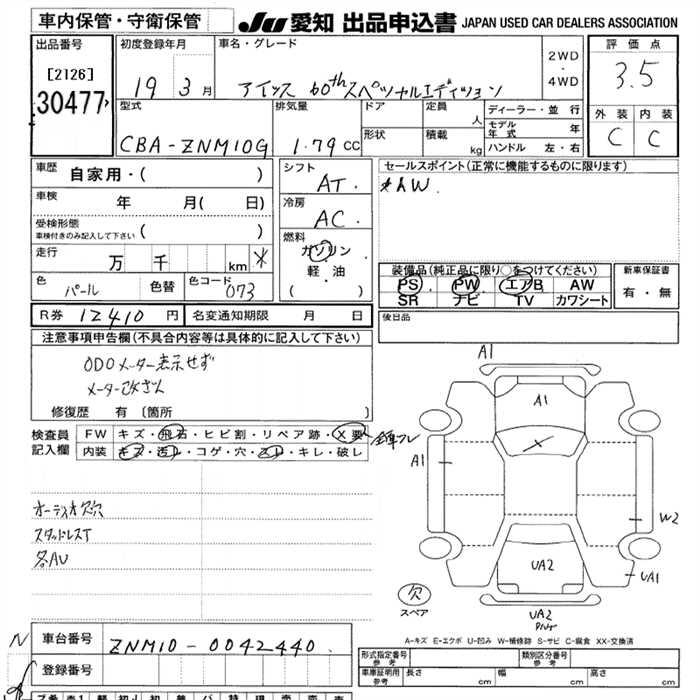 車内保管・守衛保管
JU 愛知 出品申込書 JAPAN USED CAR DEALERS ASSOCIATION
出品番号
[2126]
30477
初度登録年月
19 3 月
車名・グレード
アイシス 60thスペシャルエディション
2WD
・
4WD
評価点
3.5
外装 内装
C C
型式
CBA-ZNM10G
排気量
1.79 CC
ドア
形状
定員
人
積載
kg
ディーラー・並行
モデル年式 年
ハンドル 左・右
車歴
自家用・( )
車検
年 月( 日)
受検形態
車検付きのみ記入して下さい ( )
走行
万 千 km *
色
パール
色替
色コード
073
シフト
AT.
冷房
AC.
燃料
ガソリン
軽・油
( )
セールスポイント(正常に機能するものに限ります)
AW.
装備品(純正品に限り○をつけてください)
PS PW エアB AW
SR ナビ TV カワシート
新車保証書
有・無
R券 12410 円
名変通知期限 月 日
後日品
注意事項申告欄(不具合内容等は具体的に記入して下さい)
ODOメーター表示せず
メーター改ざん
修復歴 有 〔箇所 〕
検査員
記入欄
FW キズ・飛石・ヒビ割・リペア跡・X要
内装 キズ・汚レ・コゲ・穴・スレ・キレ・破レ
オーディオ欠穴
スタッドレスT
各AU
A1
A1
A1
X
W2
UA1
UA2
UA2
欠
スペア
A-キズ E-エクボ U-凹み W-補修跡 S-サビ C-腐食 XX-交換済
N
車台番号
ZNM10-0042440
登録番号
形式指定番号
参考
類別区分番号
参考
車庫証明用
参考
長さ cm
幅 cm
高さ cm